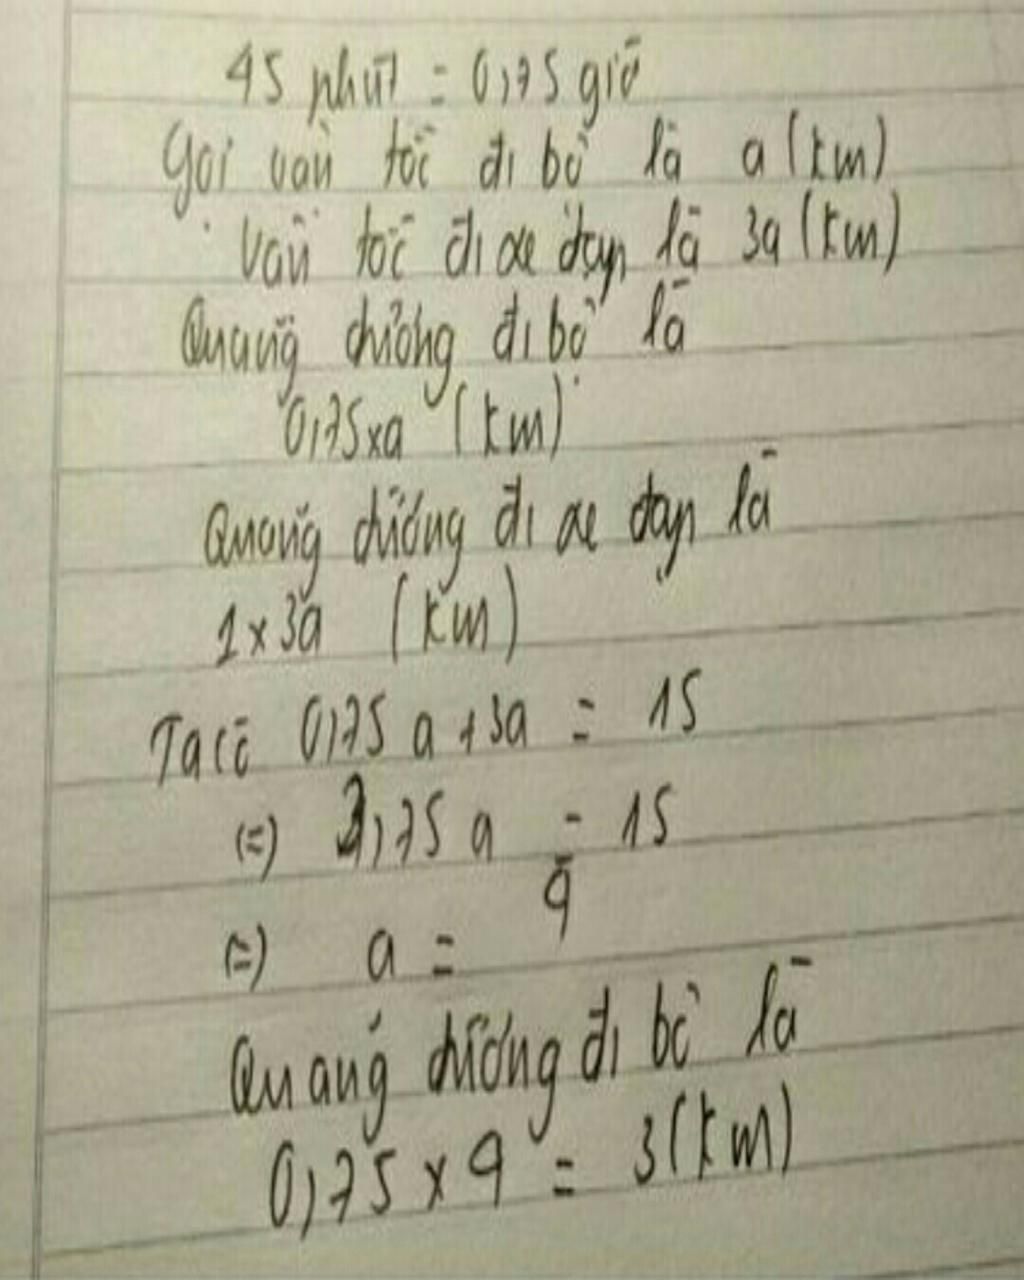 45 phút = 0,75 giờ
Gọi vận tốc đi bộ là a (km)
Vận tốc đi xe đạp là 3a (km)
Quãng đường đi bộ là
0,75xa (km)
Quãng đường đi xe đạp là
1 x 3a (km)
Ta có 0,75 a + 3a = 15
(=) 3,75 a = 15
(=) a = 4
Quãng đường đi bộ là
0,75 x 4 = 3 (km)